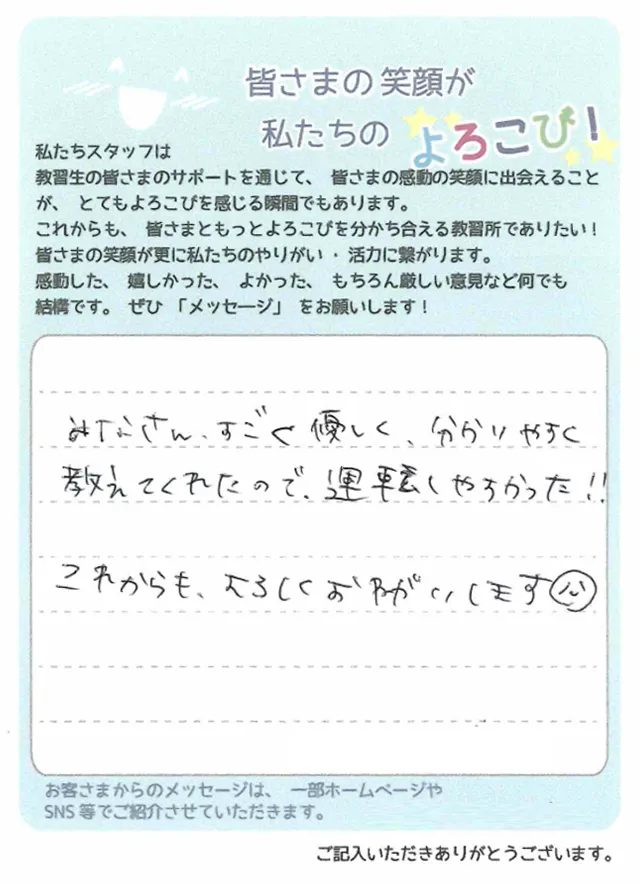 皆さまの笑顔が
私たちの よろこび!
私たちスタッフは
教習生の皆さまのサポートを通じて、 皆さまの感動の笑顔に出会えること
が、 とてもよろこびを感じる瞬間でもあります。
これからも、 皆さまともっとよろこびを分かち合える教習所でありたい!
皆さまの笑顔が更に私たちのやりがい・活力に繋がります。
感動した、 嬉しかった、 よかった、 もちろん厳しい意見など何でも
結構です。 ぜひ 「メッセージ」 をお願いします!
みなさん、すごく優しく、分かりやすく
教えてくれたので、運転しやすかった!!
これからも、よろしくおねがいします
お客さまからのメッセージは、 一部ホームページや
SNS等でご紹介させていただきます。
ご記入いただきありがとうございます。